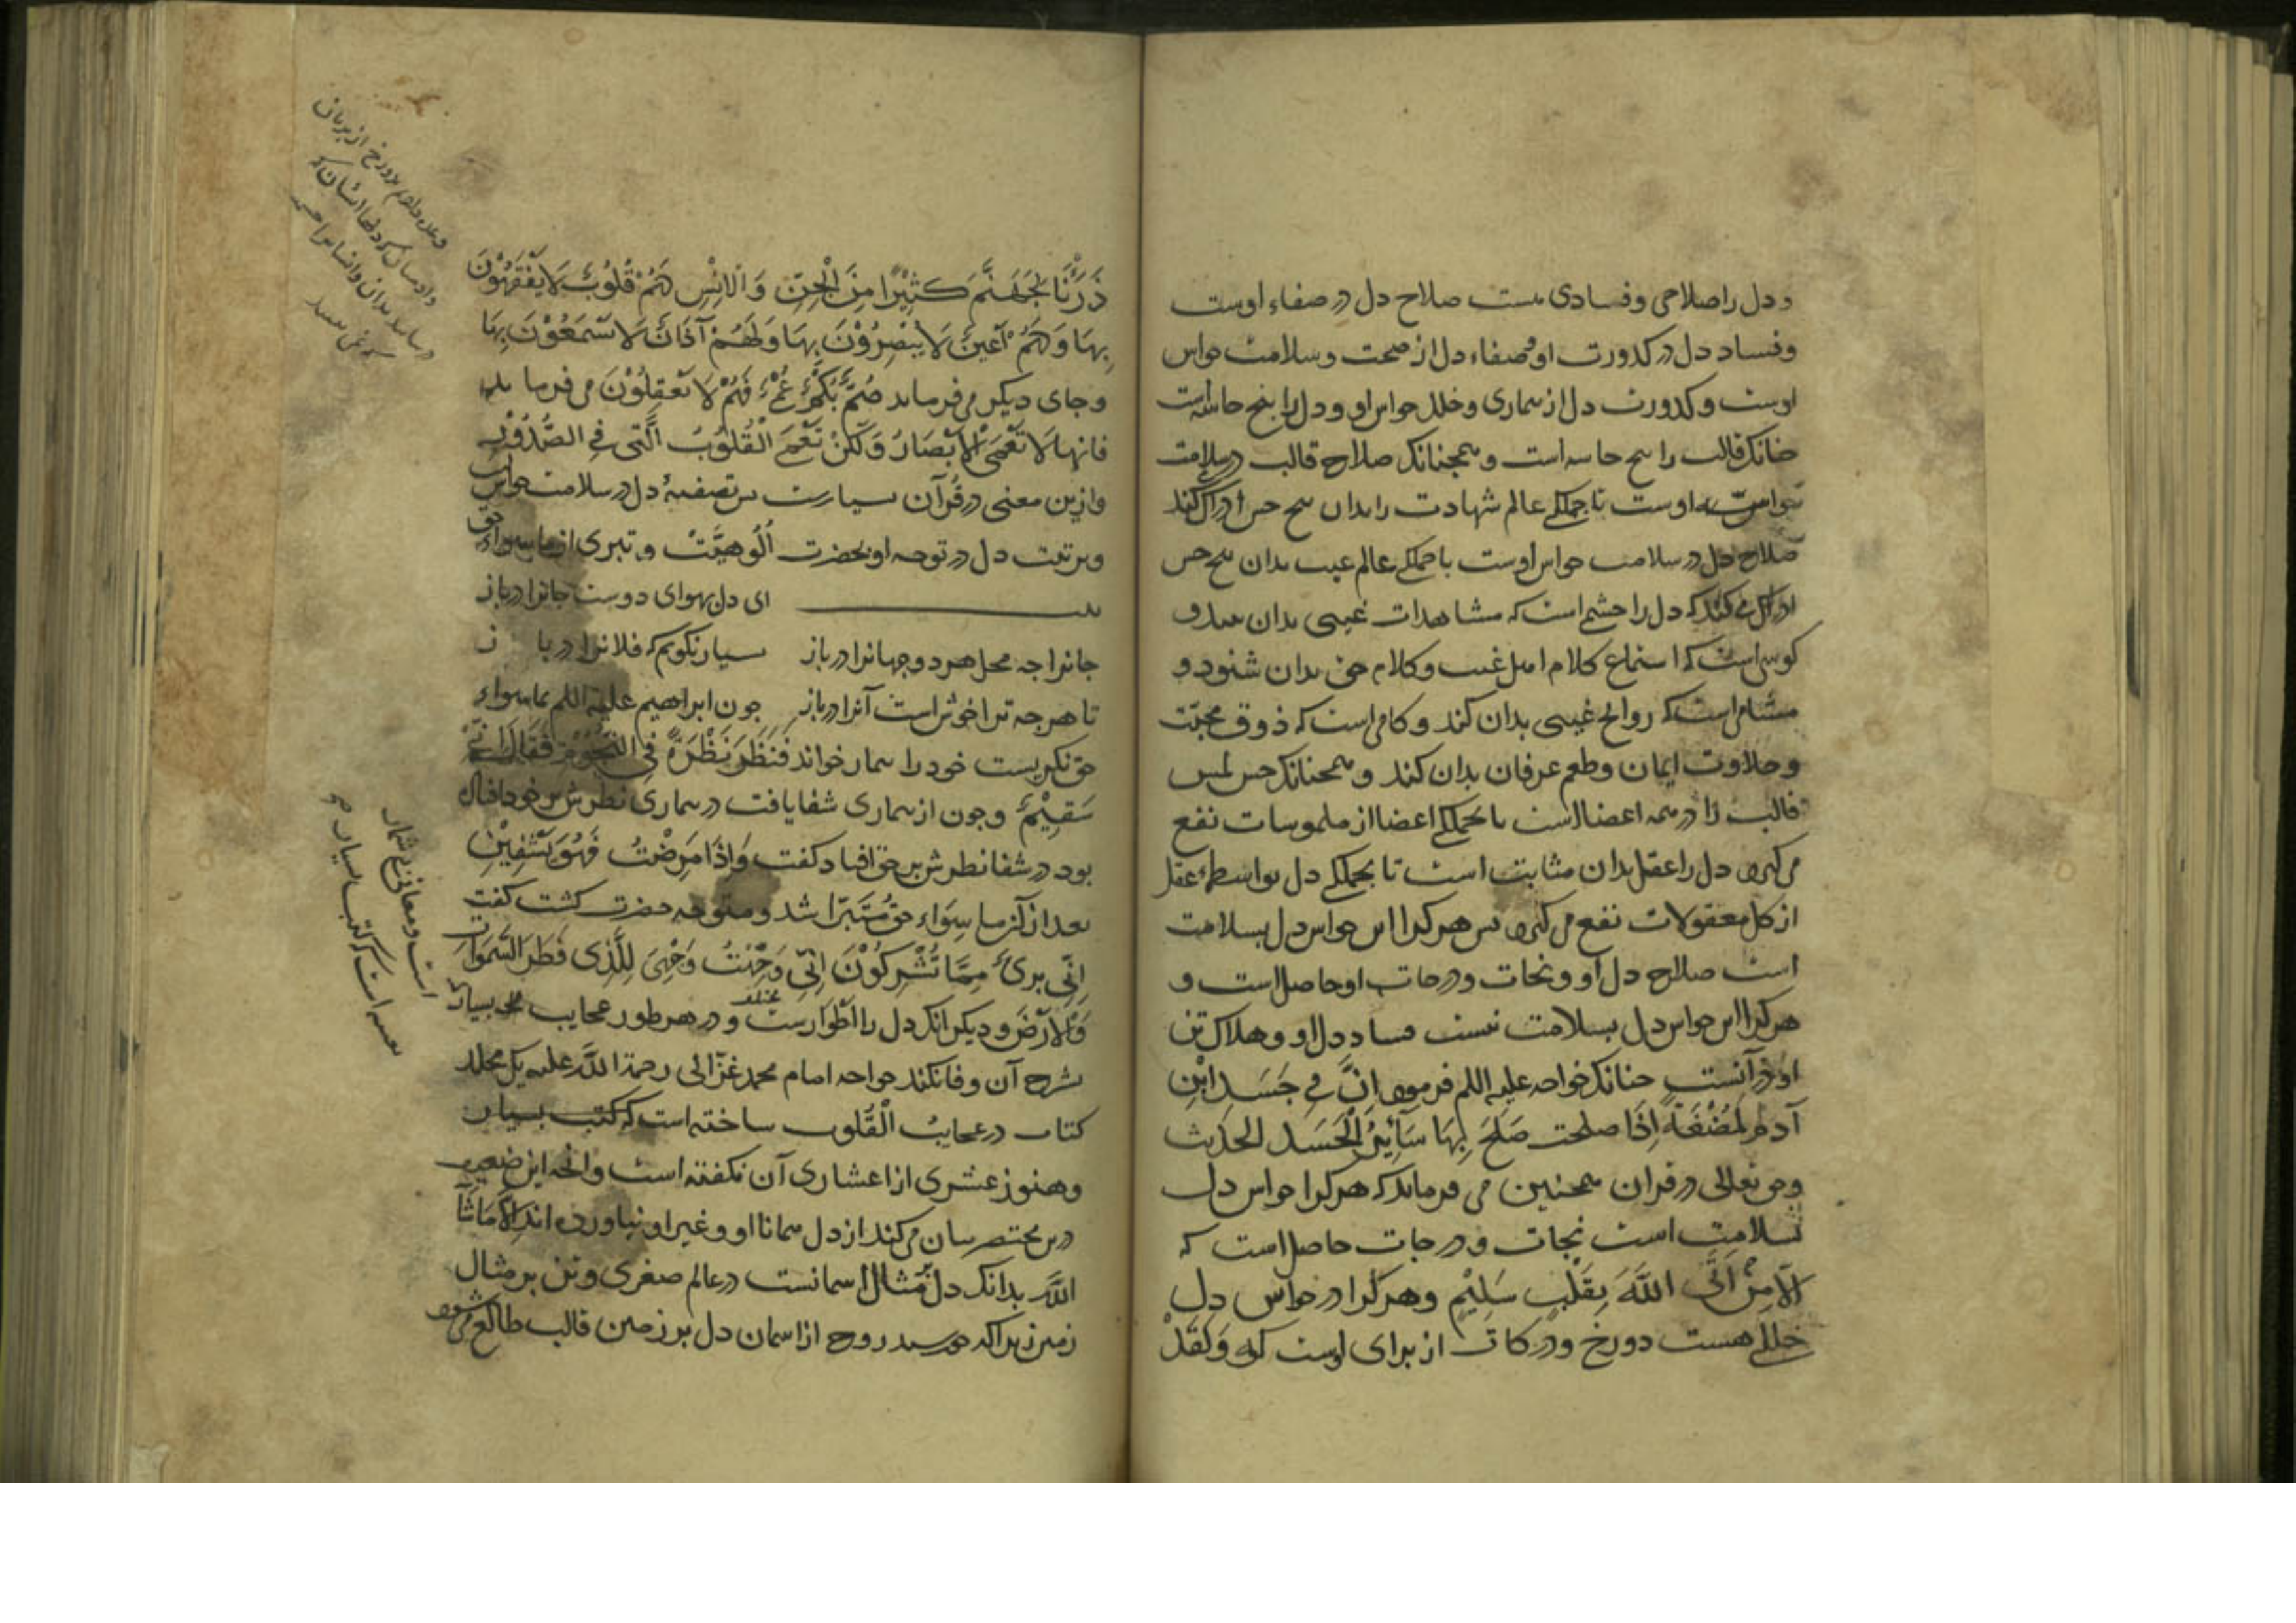 و دل را صلاحی و فسادی هست صلاح دل در صفاء اوست
و فساد دل در کدورت او و صفاء دل از صحت و سلامت حواس
اوست و کدورت دل از بیماری و خلل حواس او و دل را پنج حاسه است
چنانک قالب را پنج حاسه است و همچنانک صلاح قالب در سلامت
حواس اوست تا جملکی عالم شهادت را بدان پنج حس ادراک کند
صلاح دل در سلامت حواس اوست تا جملکی عالم غیب بدان پنج حس
ادراک می کند که دل را چشمی است که مشاهدات غیبی بدان بیند و
کوشی است که استماع کلام اهل غیب و کلام حق بدان شنود و
مشامی است که روایح غیبی بدان کند و کامی است که ذوق محبّت
و حلاوت ایمان و طعم عرفان بدان کند و همچنانک حس لمس
قالب را در همه اعضا است تا بجملکی اعضا از ملموسات نفع
می کیرد دل را عقل بدان مثابت است تا بجملکی دل بواسطهٔ عقل
از کل معقولات نفع می کیرد پس هر کرا این حواس دل بسلامت
است صلاح دل او و نجات و درجات او حاصل است و
هر کرا این حواس دل بسلامت نیست فساد دل او و هلاک تن
او در آنست چنانک خواجه علیه اللم فرمود اِنَّ فِی جَسَدِ ابْنِ
آدَمَ لَمُضْغَةً اِذَا صلحت صَلَحَ بِهَا سَآئِرُ الْجَسَدِ الحدیث
وحق تعالی در قرآن همچنین می فرماید که هر کرا حواس دل
بسلامت است نجات و درجات حاصل است که
اِلَّا مَنْ اَتَی اللّٰهَ بِقَلْبٍ سَلِیْمٍ و هر کرا در حواس دل
خللی هست دوزخ و درکات از برای اوست که وَلَقَدْ
ذَرَأْنَا لِجَهَنَّمَ کَثِیْرًا مِنَ الْجِنِّ وَالْاِنْسِ لَهُمْ قُلُوْبٌ لَا یَفْقَهُوْنَ
بِهَا وَلَهُمْ اَعْیُنٌ لَا یُبْصِرُوْنَ بِهَا وَلَهُمْ آذَانٌ لَا یَسْمَعُوْنَ بِهَا
و جای دیکر می فرماید صُمٌّ بُکْمٌ عُمْیٌ فَهُمْ لَا یَعْقِلُوْنَ می فرماید
فانها لَا تَعْمَی الْاَبْصَارُ وَلٰکِنْ تَعْمَی الْقُلُوْبُ الَّتِی فِی الصُّدُوْرِ
و ازین معنی در قُرآن بسیارست پس تصفیهٔ دل در سلامت حواس
و تربیت دل در توجه او بحضرت اُلُوهِیَّتْ و تبری از ما سواء حق
بیت ای دل بهوای دوست جانرا در باز
جانرا چه محل هر دو جهانرا در باز بسیار نکویم که فلانرا در باز
تا هر چه ترا خوش است آنرا در باز چون ابراهیم علیه اللم بما سواء
حق نکریست خود را بیمار خواند فَنَظَرَ نَظْرَةً فِی النُّجُوْمِ فَقَالَ اِنِّی
سَقِیْمٌ و چون از بیماری شفا یافت در بیماری نظرش بر خود افتاده
بود در شفا نظرش بر حق افتاد کفت وَاِذَا مَرِضْتُ فَهُوَ یَشْفِیْنِ
بعد از آن از ما سِوَاء حق مُتَبَرّا شد و متوجه حضرت کشت کفت
اِنِّی بریٔ مِمَّا تُشْرِکُوْنَ اِنِّی وَجَّهْتُ وَجْهِیَ لِلَّذِی فَطَرَ السَّمٰوَاتِ
وَالْاَرْضَ و دیکر آنک دل را اَطْوَارست مختلف و در هر طور عجایب بسیار
شرح آن وفا نکند خواجه امام محمد غزّالی رحمة اللّٰه علیه یک مجلد
کتاب در عجایبُ الْقُلُوب ساخته است که کتب بسیار
و هنوز عشری از اعشاری آن نکفته است و آنچه این ضعیف
درین مختصر بیان می کند از دل همانا او و غیر او نیاورده اند اِلَّا مَا شَآءَ
اللّٰه بدانک دل بر مثال آسمانست در عالم صغری و تن بر مثال
زمین زیراکه خورشید روح از آسمان دل بر زمین قالب طالع می شود